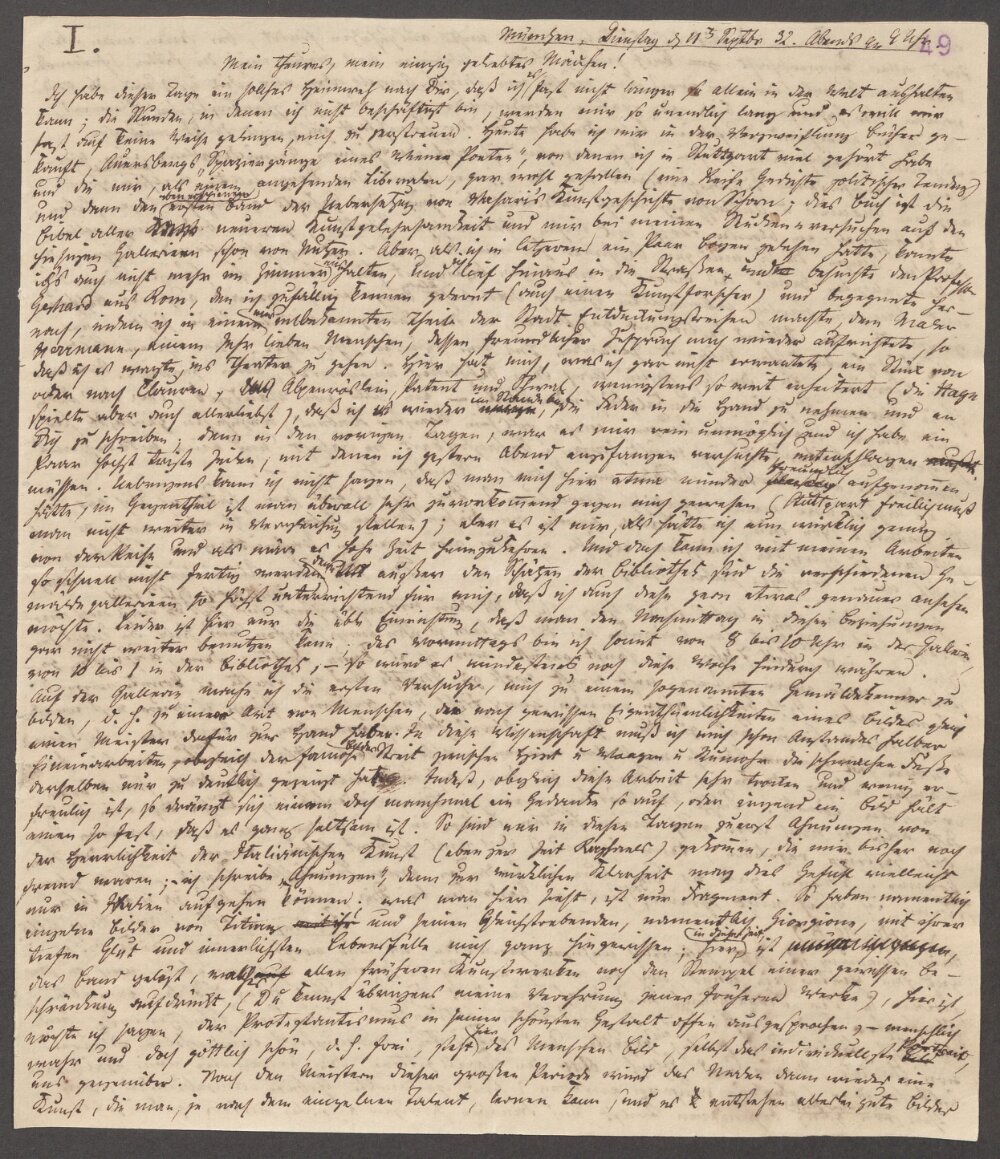 I.
München, Dienstag d 11ten Septbr 32. Abends gg 9 Uhr.
49
Mein theures, mein einzig geliebtes Mädchen!
Ich habe dieser Tage ein solches Heimweh nach Dir, daß ich es fast nicht länger so allein in der Welt aushalten
kann; die Stunden, in denen ich nicht beschäftigt bin, werden mir so unendlich lang und es will mir
fast auf keine Weise gelingen, mich zu zerstreuen. Heute habe ich mir in der Verzweiflung Bücher ge-
kauft, Auerspergs „Spaziergänge eines Wiener Poeten", von denen ich in Stuttgart viel gehört habe
und die mir, als einem angehenden Liberalen, gar wohl gefallen (eine Reihe Gedichte politischer Tendenz)
und dann den ersten Band der Uebersetzung von Vasari's Kunstgeschichte von Schorn; dies Buch ist die
Bibel aller neueren Kunstgelehrsamkeit und mir bei meinen Studien-versuchen auf den
hiesigen Gallerieen schon von Nutzen. Aber als ich in letzterem ein Paar Bogen gelesen hatte, konnte
ichs auch nicht mehr im Zimmer aushalten, und lief hinaus in die Straßen, besuchte den Professor
Gerhard aus Rom, den ich zufällig kennen gelernt (auch einen Kunstforscher) und begegnete her-
nach, indem ich in einem mir unbekannten Theile der Stadt Entdeckungsreisen machte, dem Maler
Herrmann, einem sehr lieben Menschen, dessen freundlicher Zuspruch mich wieder aufrichtete, so
daß ich es wagte, ins Theater zu gehen. Hier hat mich, was ich gar nicht erwartete, ein Stück von
oder nach Clauren, das Alpenröslein, Patent und Shwal, wenigstens so weit erheitert (die Hagn
spielte aber auch allerliebst), daß ich wieder im Stande bin, die Feder in die Hand zu nehmen und an
Dich zu schreiben; denn in den vorigen Tagen, war es mir rein unmöglich und ich habe ein
Paar höchst triste Zeilen, mit denen ich gestern Abend anzufangen versuchte, unterschlagen
müssen. Uebrigens kann ich nicht sagen daß man mich hier etwa minder freundlich aufgenommen
hätte, im Gegentheil ist man überall sehr zuvorkommend gegen mich gewesen (Stuttgart freilich muß
man nicht weiter in Vergleichung stellen); aber es ist mir, als hätte ich nun wirklich genug
von der Reise und als wäre es hohe Zeit heimzukehren. Und doch kann ich mit meinen Arbeiten
so schnell nicht fertig werden, denn außer den Schätzen der Bibliothek sind die verschiedenen Ge-
mäldegallerieen so höchst unterrichtend für mich, daß ich auch diese gern etwas genauer ansehen
möchte. Leider ist hier nur die üble Einrichtung, daß man den Nachmittag in diesen Beziehungen
gar nicht weiter benutzen kann; des Vormittags bin ich sonst von 8 bis 10 Uhr in der Galerie,
von 10 bis 1 in der Bibliothek, – so wird es mindestens noch diese Woche hindurch währen.
Auf der Gallerie mache ich die ersten Versuche, mich zu einem sogenannten Gemäldekenner zu
bilden, d. h. zu einer Art von Menschen, die nach gewissen Eigenthümlichkeiten eines Bildes gleich
einen Meister dafür zur Hand haben. In diese Wissenschaft muß ich mich schon Anstandes halber
hineinarbeiten obgleich der famose Streit zwischen Hirt u Waagen u Rumohr die schwachen Seite
derselben nur zu deutlich gezeigt hat. Indeß, obgleich diese Arbeit sehr trocken und wenig er-
freulich ist, so drängt sich einem doch manchmal ein Gedanke so auf, oder irgend ein Bild hält
einen so fest, daß es ganz seltsam ist. So sind mir in diesen Tagen zuerst Ahnungen von
der Herrlichkeit der Italiänischen Kunst (eben zur Zeit Raphaels) gekommen, die mir bisher noch
fremd waren; ich schreibe „Ahnungen", denn zur wirklichen Klarheit mag dies Gefühl vielleicht
nur in Italien aufgehen können; was man hier sieht, ist nur Fragment. So haben namentlich
einzelne Bilder von Titian und seinen Gleichstrebenden, namentlich Giorgione, mit ihrer
tiefen Glut und innerlichsten Lebensfülle mich ganz hingerissen; hier ist in dieser Zeit
das Band gelöst, was allen früheren Kunstwerken noch den Stempel einer gewissen Be-
schränkung aufdrückt, (Du kennst übrigens meine Verehrung jener früheren Werke), hier ist,
möcht ich sagen, der Protestantismus in seiner schönsten Gestalt offen ausgesprochen; – menschlich
wahr und doch göttlich schön, d. h. frei, steht hier des Menschen Bild, selbst das individuellste Portrait,
uns gegenüber. Nach den Meistern dieser großen Periode wird das Malen dann wieder eine
Kunst, die man, je nach dem einzelnen Talent, lernen kann, und es entstehen allerlei gute Bilder